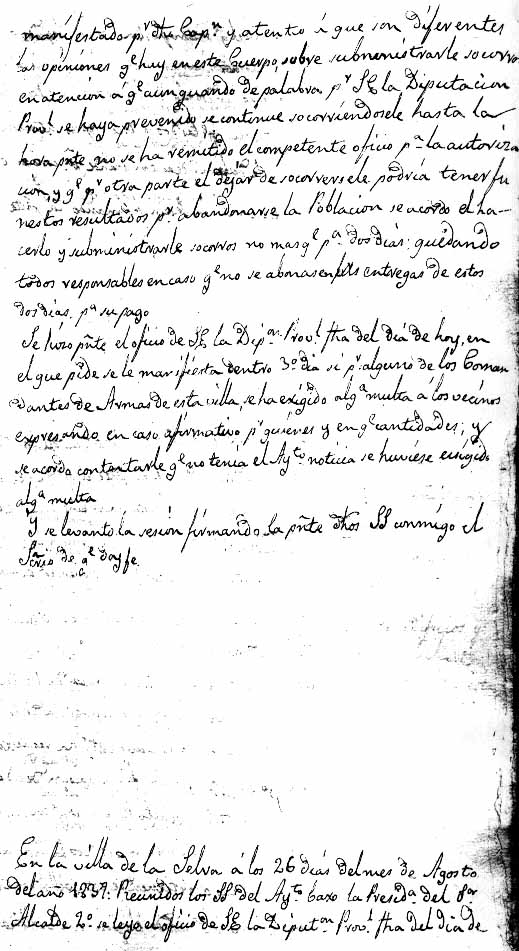 manifestado pr dho Capn y atento á que son diferentes
las opiniones qe hay en este Cuerpo, sobre subministrarle socorro
en atencion á qe aunquando de palabra pr SE la Diputacion
Provl se haya prevenido se continue socorriendosele hasta la
hora pnte no se ha remitido el competente oficio pa la autoriza
cion, y qe pr otra parte el dejar de socorrersele podria tener fu
nestos resultados pr abandonarse la Poblacion se acordo el ha-
cerlo y subministrarle socorros no mas qe pa dos dias: quedando
todos responsables en caso qe no se abonasen las entregas de estos
dos dias pa su pago
Se hizo pnte el oficio de SE la Dipon Provl fha del dia de hoy, en
el que pide se le manifieste dentro 3o dia si pr alguno de los Coman
dantes de Armas de esta villa, se ha exigido alga multa á los vecinos
expresando en caso afirmativo pr quienes y en qe cantidades; y
se acordo contestarle qe no tenia el Ayto noticia se huviese exigido
alga multa
Y se levantó la sesion firmando la pnte dhos SS conmigo el
Srio de qe doy fe
En la villa de la Selva á los 26 dias del mes de Agosto
del año 1837. Reunidos los SS del Ayto baxo la Presida del Sor
Alcalde 2o se leyó el oficio de SE la Diputon Provl fha del dia de